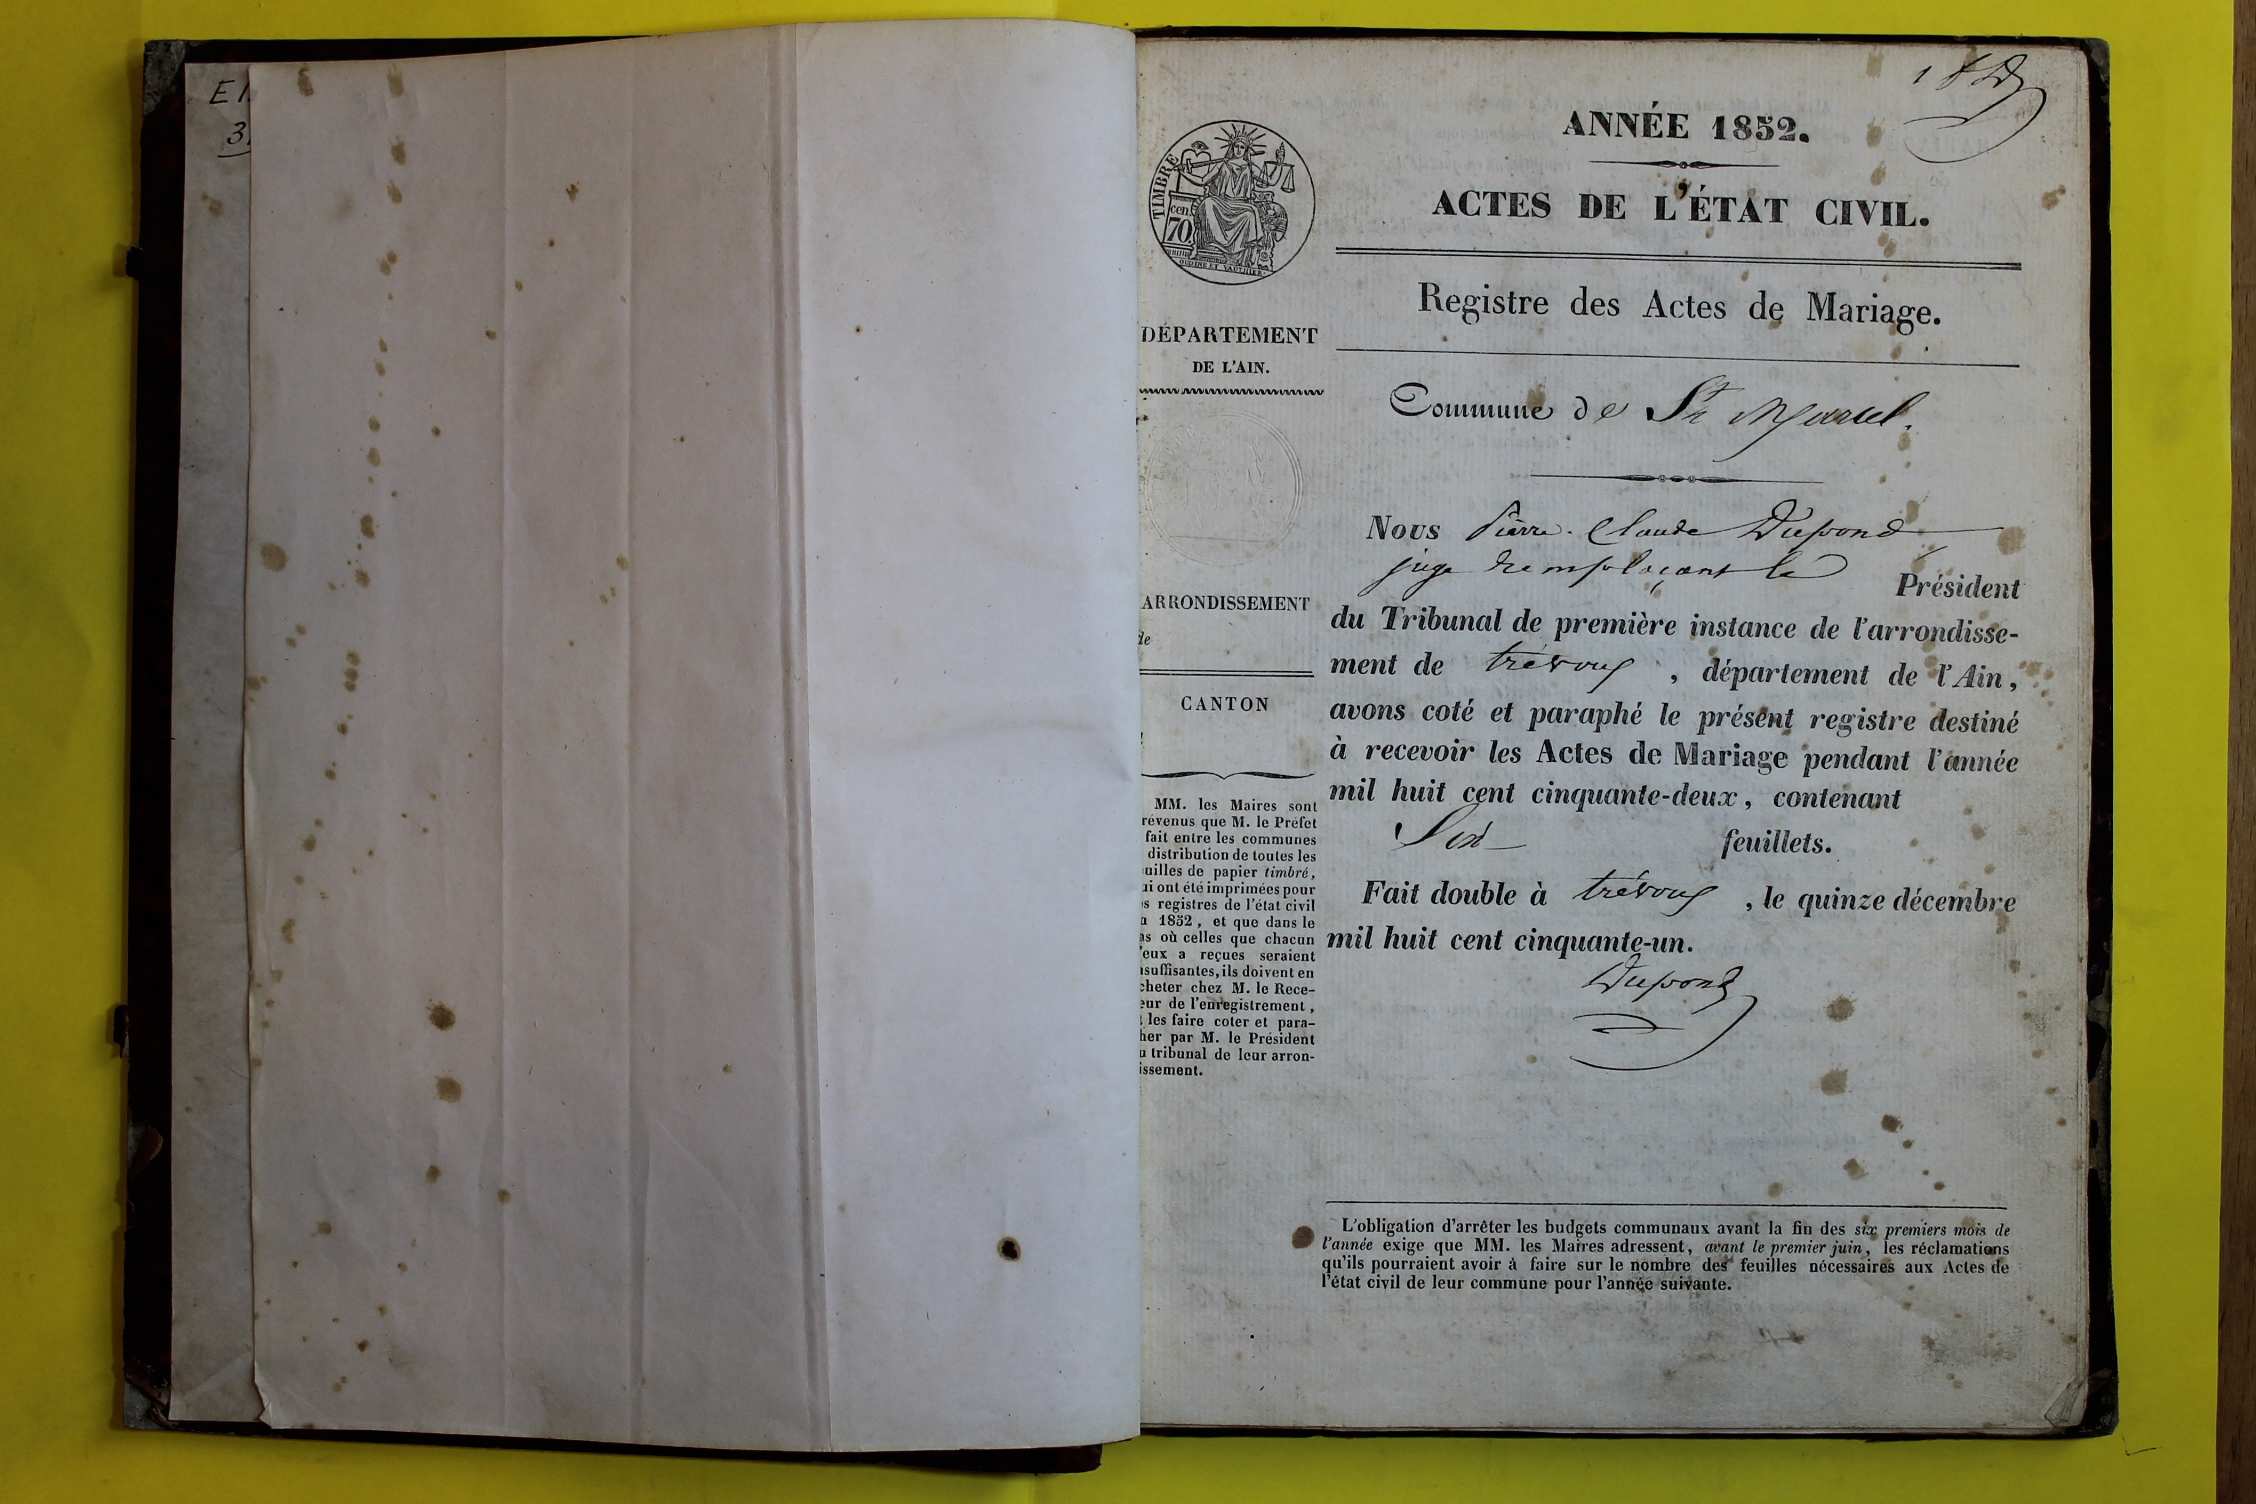 E1
3
1 fD
ANNÉE 1852.
ACTES DE L'ÉTAT CIVIL.
Registre des Actes de Mariage.
Commune de St Marcel.
Nous Pierre-Claude Dupond
juge remplaçant le Président
du Tribunal de première instance de l'arrondisse-
ment de trévoux , département de l'Ain,
avons coté et paraphé le présent registre destiné
à recevoir les Actes de Mariage pendant l'année
mil huit cent cinquante-deux, contenant
Six feuillets.
Fait double à trévoux , le quinze décembre
mil huit cent cinquante-un.
Dupond
L'obligation d'arrêter les budgets communaux avant la fin des six premiers mois de
l'année exige que MM. les Maires adressent, avant le premier juin, les réclamations
qu'ils pourraient avoir à faire sur le nombre des feuilles nécessaires aux Actes de
l'état civil de leur commune pour l'année suivante.
TIMBRE
cen.
70
OUDINÉ ET VAUTHIER.
DÉPARTEMENT
DE L'AIN.
ARRONDISSEMENT
de
CANTON
MM. les Maires sont
révenus que M. le Préfet
fait entre les communes
distribution de toutes les
uilles de papier timbré,
ui ont été imprimées pour
s registres de l'état civil
1852, et que dans le
as où celles que chacun
'eux a reçues seraient
nsuffisantes, ils doivent en
cheter chez M. le Rece-
eur de l'enregistrement,
t les faire coter et para-
her par M. le Président
u tribunal de leur arron-
issement.